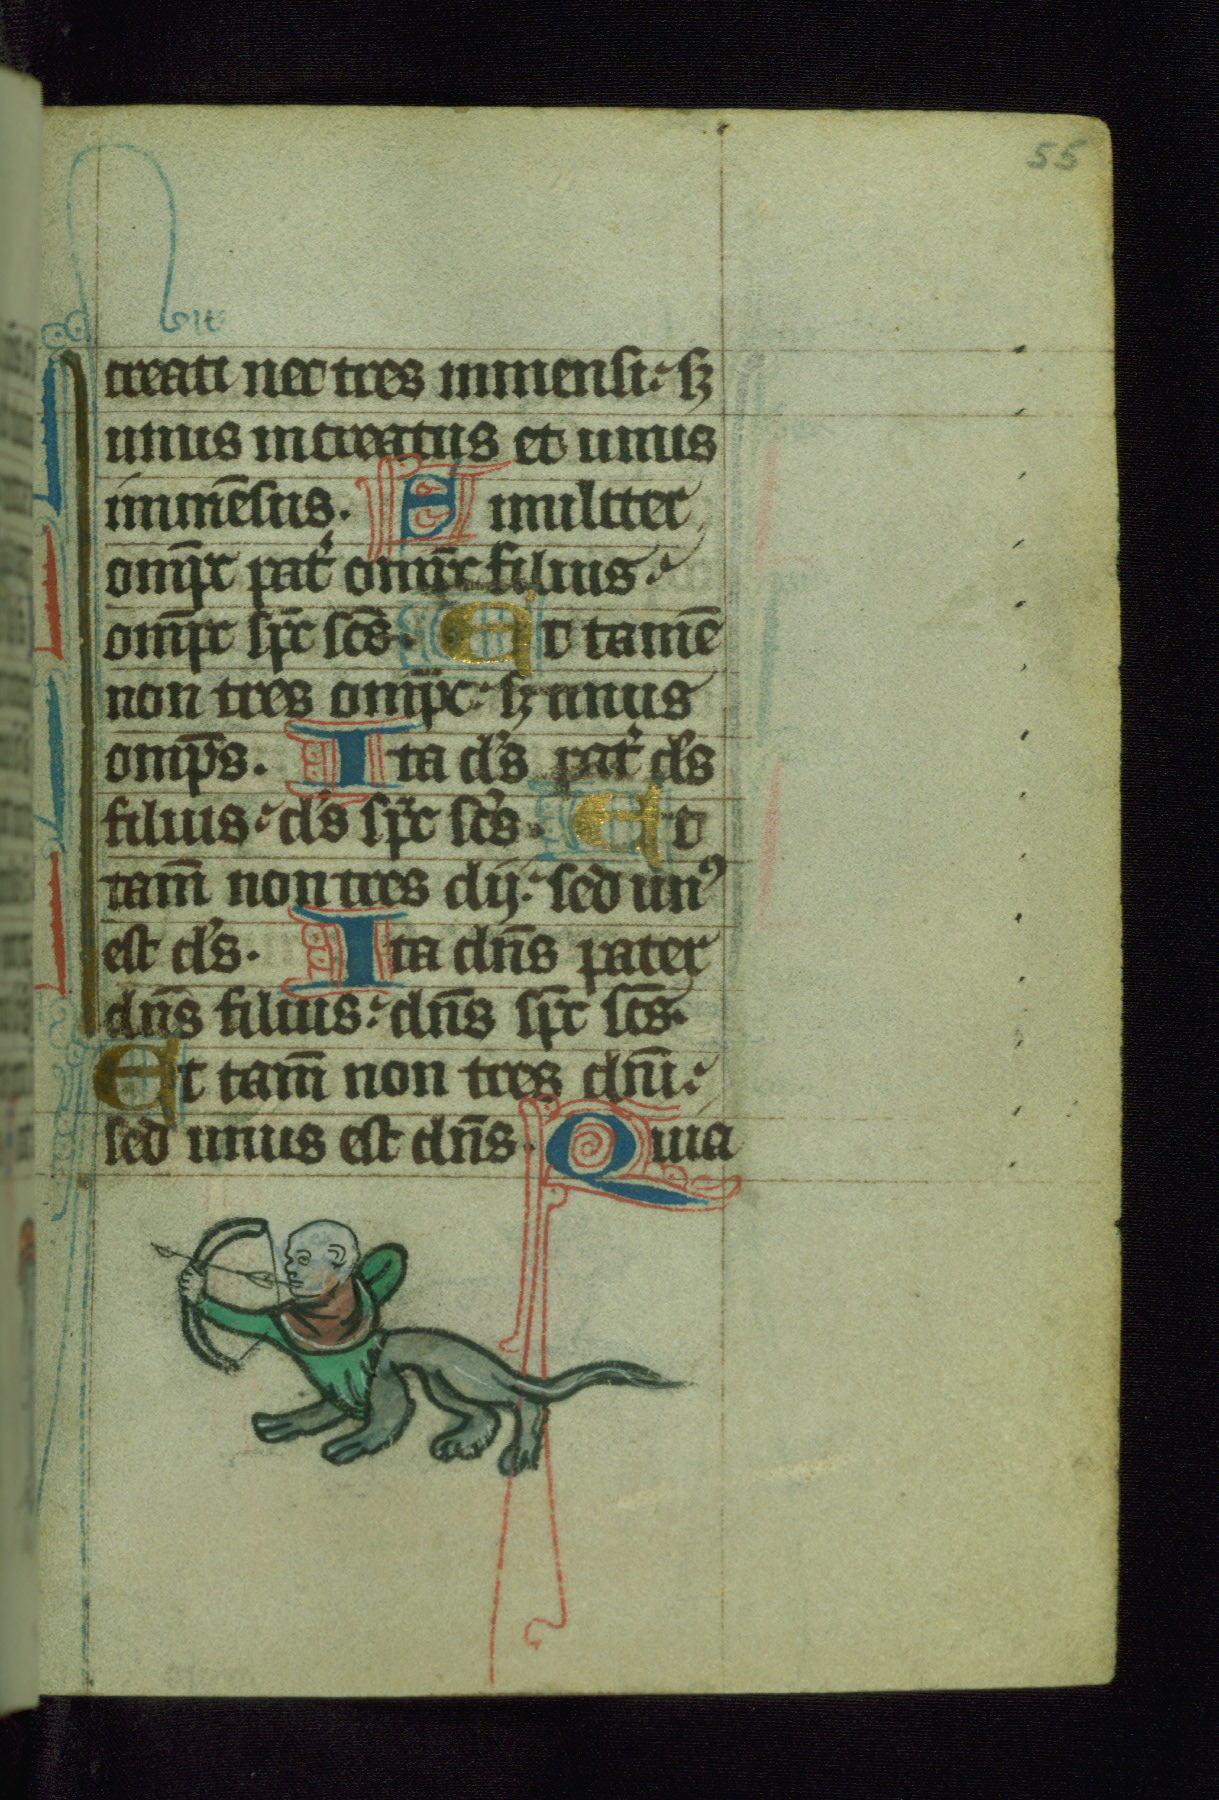 55
creati nec tres inmensi: sꝫ
unus increatus et unus
immēsus. Similiter
omp̄s pat̉ omp̄s filius:
omp̄s sp̄s sc̄s. Et tamē
non tres omp̄s: sꝫ unus
omp̄s. Ita ds̄ pat̉ ds̄
filius: ds̄ sp̄s sc̄s. Et
tam̄ non tres dij: sed unꝰ
est ds̄. Ita dn̄s pater
dn̄s filius: dn̄s sp̄s sc̄s.
Et tam̄ non tres dn̄i:
sed unus est dn̄s. Quia